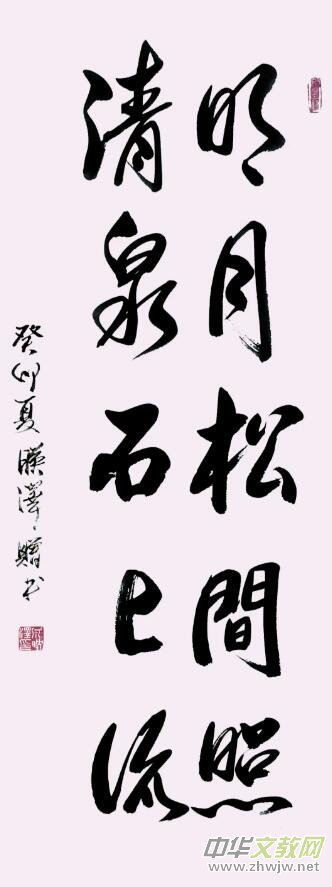 明月松間照
清泉石上流
癸卯夏 澤贈书
中华文教网
www.zhwjw.net